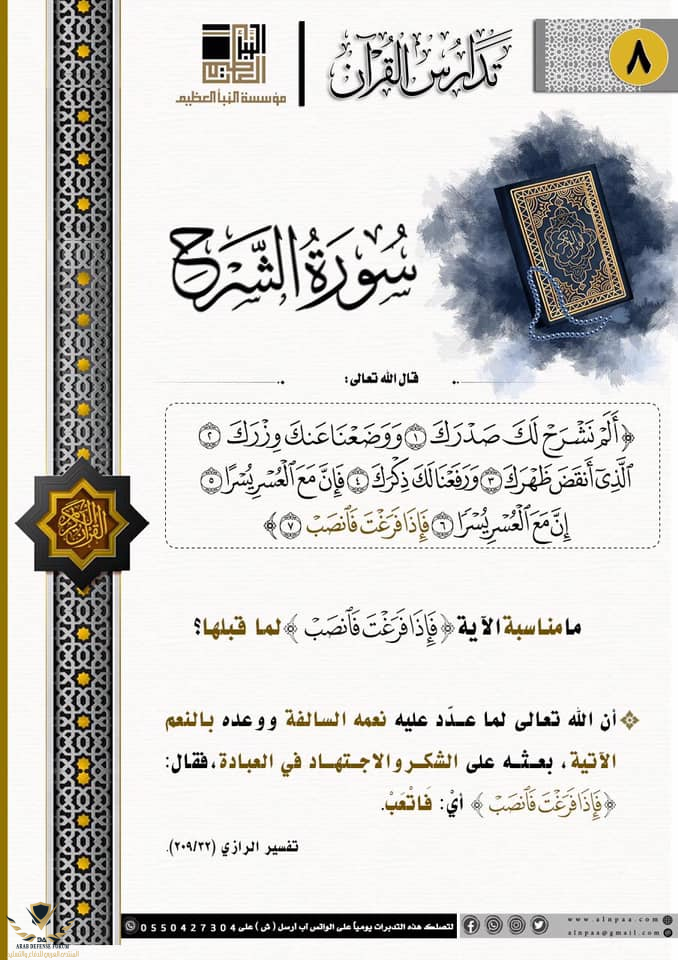 ٨
تدارس القرآن
النبأ العظيم
مؤسسة النبأ العظيم
سُورَةُ الشَّرْحِ
قال الله تعالى:
﴿ أَلَمْ نَشْرَحْ لَكَ صَدْرَكَ ١ وَوَضَعْنَا عَنكَ وِزْرَكَ ٢
ٱلَّذِىٓ أَنقَضَ ظَهْرَكَ ٣ وَرَفَعْنَا لَكَ ذِكْرَكَ ٤ فَإِنَّ مَعَ ٱلْعُسْرِ يُسْرًا ٥
إِنَّ مَعَ ٱلْعُسْرِ يُسْرًا ٦ فَإِذَا فَرَغْتَ فَٱنصَبْ ٧ ﴾
القرآن الكريم
ما مناسبة الآية ﴿ فَإِذَا فَرَغْتَ فَٱنصَبْ ﴾ لما قبلها؟
أن الله تعالى لما عدّد عليه نعمه السالفة ووعده بالنعم
الآتية، بعثه على الشكر والاجتهاد في العبادة، فقال:
﴿ فَإِذَا فَرَغْتَ فَٱنصَبْ ﴾ أيْ: فَاتْعَبْ.
تفسير الرازي (٢٠٩/٣٢).
لتصلك هذه التدبرات يومياً على الواتس آب أرسل ( ش ) على 0550427304
www.alnpaa.com
alnpaa@gmail.com
ARAB DEFENSE FORUM
المنتدى العربي للدفاع والتسليح